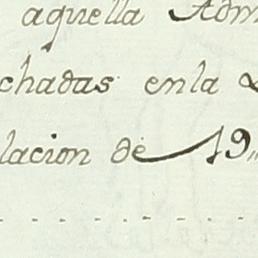 aquella Adm
chadas enla
lacion de 19